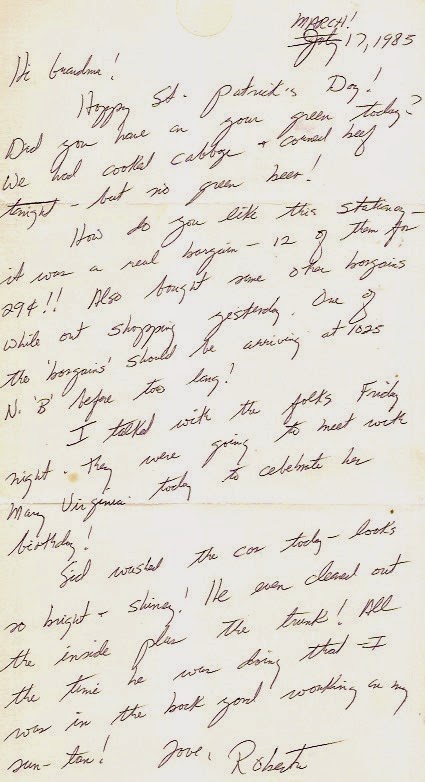 MARCH!
July 17, 1985
Hi Grandma!
Happy St. Patrick's Day!
Did you have on your green today?
We had cooked cabbage + corned beef
tonight - but no green beer!
How do you like this stationery -
it was a real bargain - 12 of them for
29¢!! Also bought some other bargains
while out shopping yesterday. One of
the 'bargains' should be arriving at 1025
N. 'B' before too long!
I talked with the folks Friday
night. They were going to meet with
Mary Virginia today to celebrate her
birthday!
Sid washed the car today - looks
so bright + shiney! He even cleaned out
the inside plus the trunk! All
the time he was doing that - I
was in the back yard working on my
sun-tan!
Love, Roberta